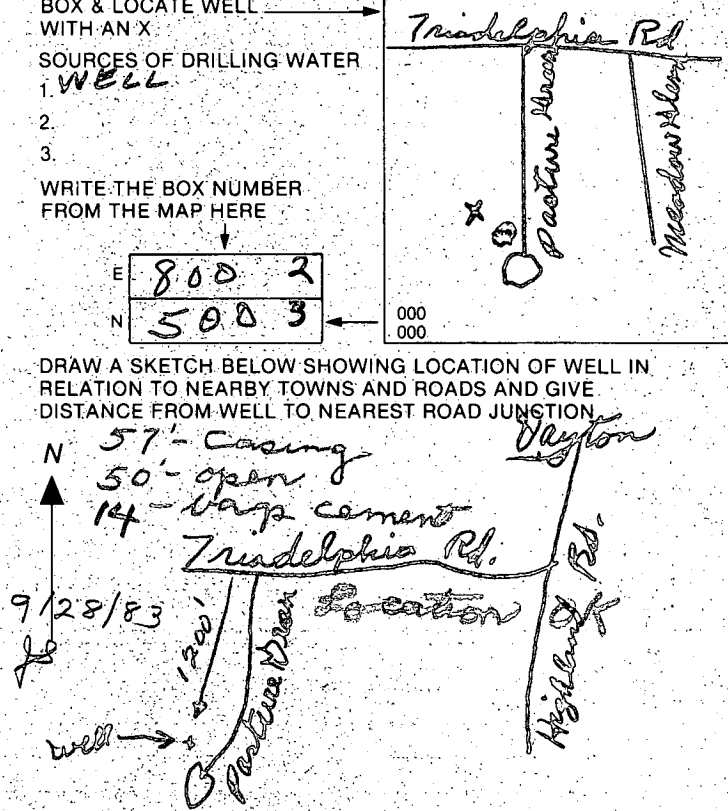 BOX & LOCATE WELL
WITH AN X
SOURCES OF DRILLING WATER
1. WELL
2.
3.
WRITE THE BOX NUMBER
FROM THE MAP HERE
E 800 2
N 500 3
000
000
Triadelphia Rd
Pasture
Meadow
DRAW A SKETCH BELOW SHOWING LOCATION OF WELL IN
RELATION TO NEARBY TOWNS AND ROADS AND GIVE
DISTANCE FROM WELL TO NEAREST ROAD JUNCTION
N
57'- Casing
50'- open
14 - bags cement
Dayton
Triadelphia Rd.
9/28/83
Location
1200'
Pasture
Highland Rd.
well